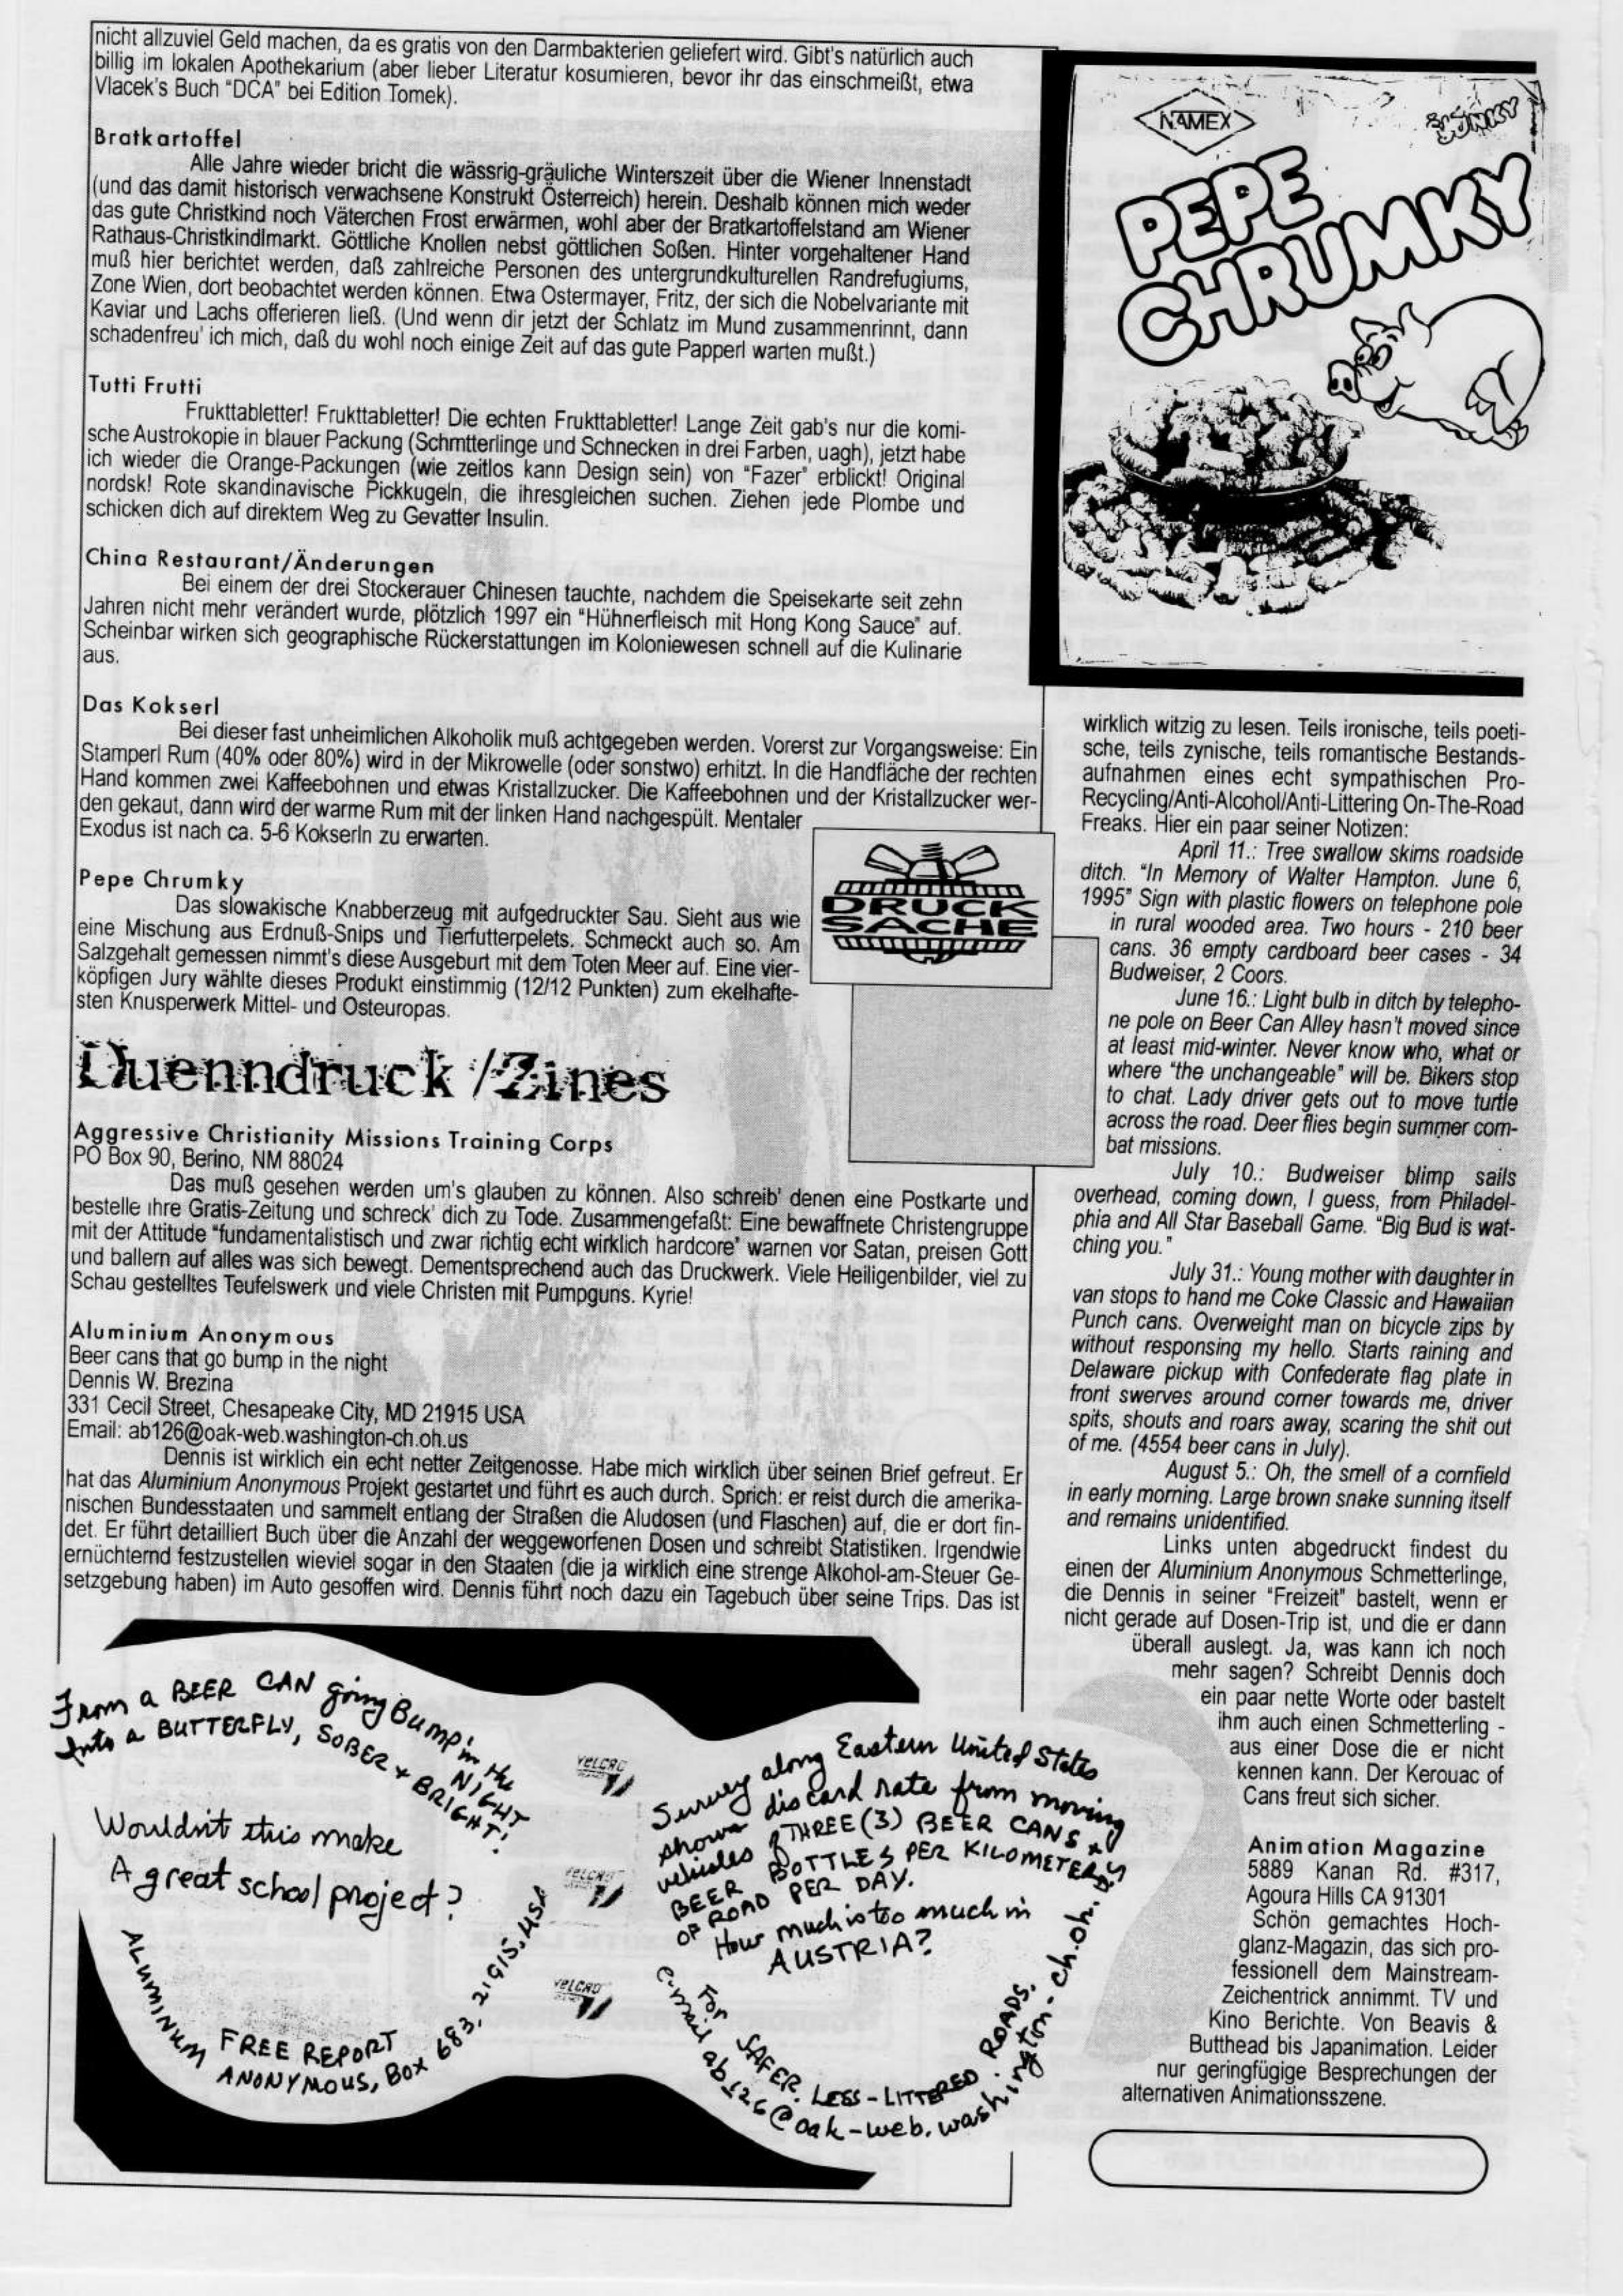 nicht allzuviel Geld machen, da es gratis von den Darmbakterien geliefert wird. Gibt's natürlich auch
billig im lokalen Apothekarium (aber lieber Literatur kosumieren, bevor ihr das einschmeißt, etwa
Vlacek's Buch "DCA" bei Edition Tomek).
Bratkartoffel
Alle Jahre wieder bricht die wässrig-gräuliche Winterszeit über die Wiener Innenstadt
(und das damit historisch verwachsene Konstrukt Österreich) herein. Deshalb können mich weder
das gute Christkind noch Väterchen Frost erwärmen, wohl aber der Bratkartoffelstand am Wiener
Rathaus-Christkindlmarkt. Göttliche Knollen nebst göttlichen Soßen. Hinter vorgehaltener Hand
muß hier berichtet werden, daß zahlreiche Personen des untergrundkulturellen Randrefugiums,
Zone Wien, dort beobachtet werden können. Etwa Ostermayer, Fritz, der sich die Nobelvariante mit
Kaviar und Lachs offerieren ließ. (Und wenn dir jetzt der Schlatz im Mund zusammenrinnt, dann
schadenfreu' ich mich, daß du wohl noch einige Zeit auf das gute Papperl warten mußt.)
Tutti Frutti
Frukttabletter! Frukttabletter! Die echten Frukttabletter! Lange Zeit gab's nur die komi-
sche Austrokopie in blauer Packung (Schmtterlinge und Schnecken in drei Farben, uagh), jetzt habe
ich wieder die Orange-Packungen (wie zeitlos kann Design sein) von "Fazer" erblickt! Original
nordsk! Rote skandinavische Pickkugeln, die ihresgleichen suchen. Ziehen jede Plombe und
schicken dich auf direktem Weg zu Gevatter Insulin.
China Restaurant/Änderungen
Bei einem der drei Stockerauer Chinesen tauchte, nachdem die Speisekarte seit zehn
Jahren nicht mehr verändert wurde, plötzlich 1997 ein "Hühnerfleisch mit Hong Kong Sauce" auf.
Scheinbar wirken sich geographische Rückerstattungen im Koloniewesen schnell auf die Kulinarie
aus.
Das Kokserl
Bei dieser fast unheimlichen Alkoholik muß achtgegeben werden. Vorerst zur Vorgangsweise: Ein
Stamperl Rum (40% oder 80%) wird in der Mikrowelle (oder sonstwo) erhitzt. In die Handfläche der rechten
Hand kommen zwei Kaffeebohnen und etwas Kristallzucker. Die Kaffeebohnen und der Kristallzucker wer-
den gekaut, dann wird der warme Rum mit der linken Hand nachgespült. Mentaler
Exodus ist nach ca. 5-6 Kokserln zu erwarten.
Pepe Chrumky
Das slowakische Knabberzeug mit aufgedruckter Sau. Sieht aus wie
eine Mischung aus Erdnuß-Snips und Tierfutterpelets. Schmeckt auch so. Am
Salzgehalt gemessen nimmt's diese Ausgeburt mit dem Toten Meer auf. Eine vier-
köpfigen Jury wählte dieses Produkt einstimmig (12/12 Punkten) zum ekelhafte-
sten Knusperwerk Mittel- und Osteuropas.
DRUCK
SACHE
Duenndruck /Zines
Aggressive Christianity Missions Training Corps
PO Box 90, Berino, NM 88024
Das muß gesehen werden um's glauben zu können. Also schreib' denen eine Postkarte und
bestelle ihre Gratis-Zeitung und schreck' dich zu Tode. Zusammengefaßt: Eine bewaffnete Christengruppe
mit der Attitude "fundamentalistisch und zwar richtig echt wirklich hardcore" warnen vor Satan, preisen Gott
und ballern auf alles was sich bewegt. Dementsprechend auch das Druckwerk. Viele Heiligenbilder, viel zu
Schau gestelltes Teufelswerk und viele Christen mit Pumpguns. Kyrie!
Aluminium Anonymous
Beer cans that go bump in the night
Dennis W. Brezina
331 Cecil Street, Chesapeake City, MD 21915 USA
Email: ab126@oak-web.washington-ch.oh.us
Dennis ist wirklich ein echt netter Zeitgenosse. Habe mich wirklich über seinen Brief gefreut. Er
hat das Aluminium Anonymous Projekt gestartet und führt es auch durch. Sprich: er reist durch die amerika-
nischen Bundesstaaten und sammelt entlang der Straßen die Aludosen (und Flaschen) auf, die er dort fin-
det. Er führt detailliert Buch über die Anzahl der weggeworfenen Dosen und schreibt Statistiken. Irgendwie
ernüchternd festzustellen wieviel sogar in den Staaten (die ja wirklich eine strenge Alkohol-am-Steuer Ge-
setzgebung haben) im Auto gesoffen wird. Dennis führt noch dazu ein Tagebuch über seine Trips. Das ist
From a BEER CAN going Bump in the NIGHT
Into a BUTTERFLY, SOBER + BRIGHT!
Wouldn't this make
A great school project?
FREE REPORT
ALUMINUM ANONYMOUS, Box 683, 21915, USA
VELCRO
VELCRO
VELCRO
Survey along Eastern United States
shows discard rate from moving
vehicles of THREE (3) BEER CANS &
BEER BOTTLES PER KILOMETER
OF ROAD PER DAY.
How much is too much in
AUSTRIA?
For SAFER, LESS-LITTERED ROADS.
e-mail ab126@oak-web.washington-ch.oh.us
NAMEX
JUNKY
PEPE
CHRUMKY
wirklich witzig zu lesen. Teils ironische, teils poeti-
sche, teils zynische, teils romantische Bestands-
aufnahmen eines echt sympathischen Pro-
Recycling/Anti-Alcohol/Anti-Littering On-The-Road
Freaks. Hier ein paar seiner Notizen:
April 11.: Tree swallow skims roadside
ditch. "In Memory of Walter Hampton. June 6,
1995" Sign with plastic flowers on telephone pole
in rural wooded area. Two hours - 210 beer
cans. 36 empty cardboard beer cases - 34
Budweiser, 2 Coors.
June 16.: Light bulb in ditch by telepho-
ne pole on Beer Can Alley hasn't moved since
at least mid-winter. Never know who, what or
where "the unchangeable" will be. Bikers stop
to chat. Lady driver gets out to move turtle
across the road. Deer flies begin summer com-
bat missions.
July 10.: Budweiser blimp sails
overhead, coming down, I guess, from Philadel-
phia and All Star Baseball Game. "Big Bud is wat-
ching you."
July 31.: Young mother with daughter in
van stops to hand me Coke Classic and Hawaiian
Punch cans. Overweight man on bicycle zips by
without responsing my hello. Starts raining and
Delaware pickup with Confederate flag plate in
front swerves around corner towards me, driver
spits, shouts and roars away, scaring the shit out
of me. (4554 beer cans in July).
August 5.: Oh, the smell of a cornfield
in early morning. Large brown snake sunning itself
and remains unidentified.
Links unten abgedruckt findest du
einen der Aluminium Anonymous Schmetterlinge,
die Dennis in seiner "Freizeit" bastelt, wenn er
nicht gerade auf Dosen-Trip ist, und die er dann
überall auslegt. Ja, was kann ich noch
mehr sagen? Schreibt Dennis doch
ein paar nette Worte oder bastelt
ihm auch einen Schmetterling -
aus einer Dose die er nicht
kennen kann. Der Kerouac of
Cans freut sich sicher.
Animation Magazine
5889 Kanan Rd. #317,
Agoura Hills CA 91301
Schön gemachtes Hoch-
glanz-Magazin, das sich pro-
fessionell dem Mainstream-
Zeichentrick annimmt. TV und
Kino Berichte. Von Beavis &
Butthead bis Japanimation. Leider
nur geringfügige Besprechungen der
alternativen Animationsszene.